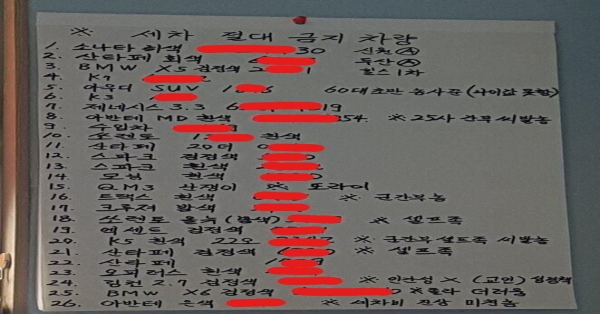 ※ 세차 절대 금지 차량
1. 소나타 회색 30 신천Ⓐ
2. 산타페 회색 6 두산Ⓐ
3. BMW X5 검정색 2 1 힐스 1차
4. K7
5. 아우디 SUV 1 5 60대초반 농사꾼 (나이값 못함)
6. K3
7. 제네시스 3.3 6 19
8. 아반테 MD 흰색 254 ※ 25사 간부 씨발놈
9. 수입차
10. 쏘렌토 흰색
11. 산타페 20더
12. 스파크 검정색
13. 스파크 흰색
14. 모닝 흰색
15. QM3 산쟁이 ※ 또라이
16. 트랙스 흰색 ※ 군간부놈
17. 크루져 밤색
18. 쏘렌토 (흰색) ※ 셀프족
19. 엑센트 검정색
20. K5 흰색 22오 ※ 군간부 셀프족 씨발놈
21. 산타페 검정색 ※ 셀프족
22. 산타페
23. 오피러스 흰색
24. 링컨 2.7 검정색 ※ 인간성 X (교인) 검정색
25. BMW X6 검정색 ※ 몰라 더러움
26. 아반테 은색 ※ 세차비 진상 미친놈